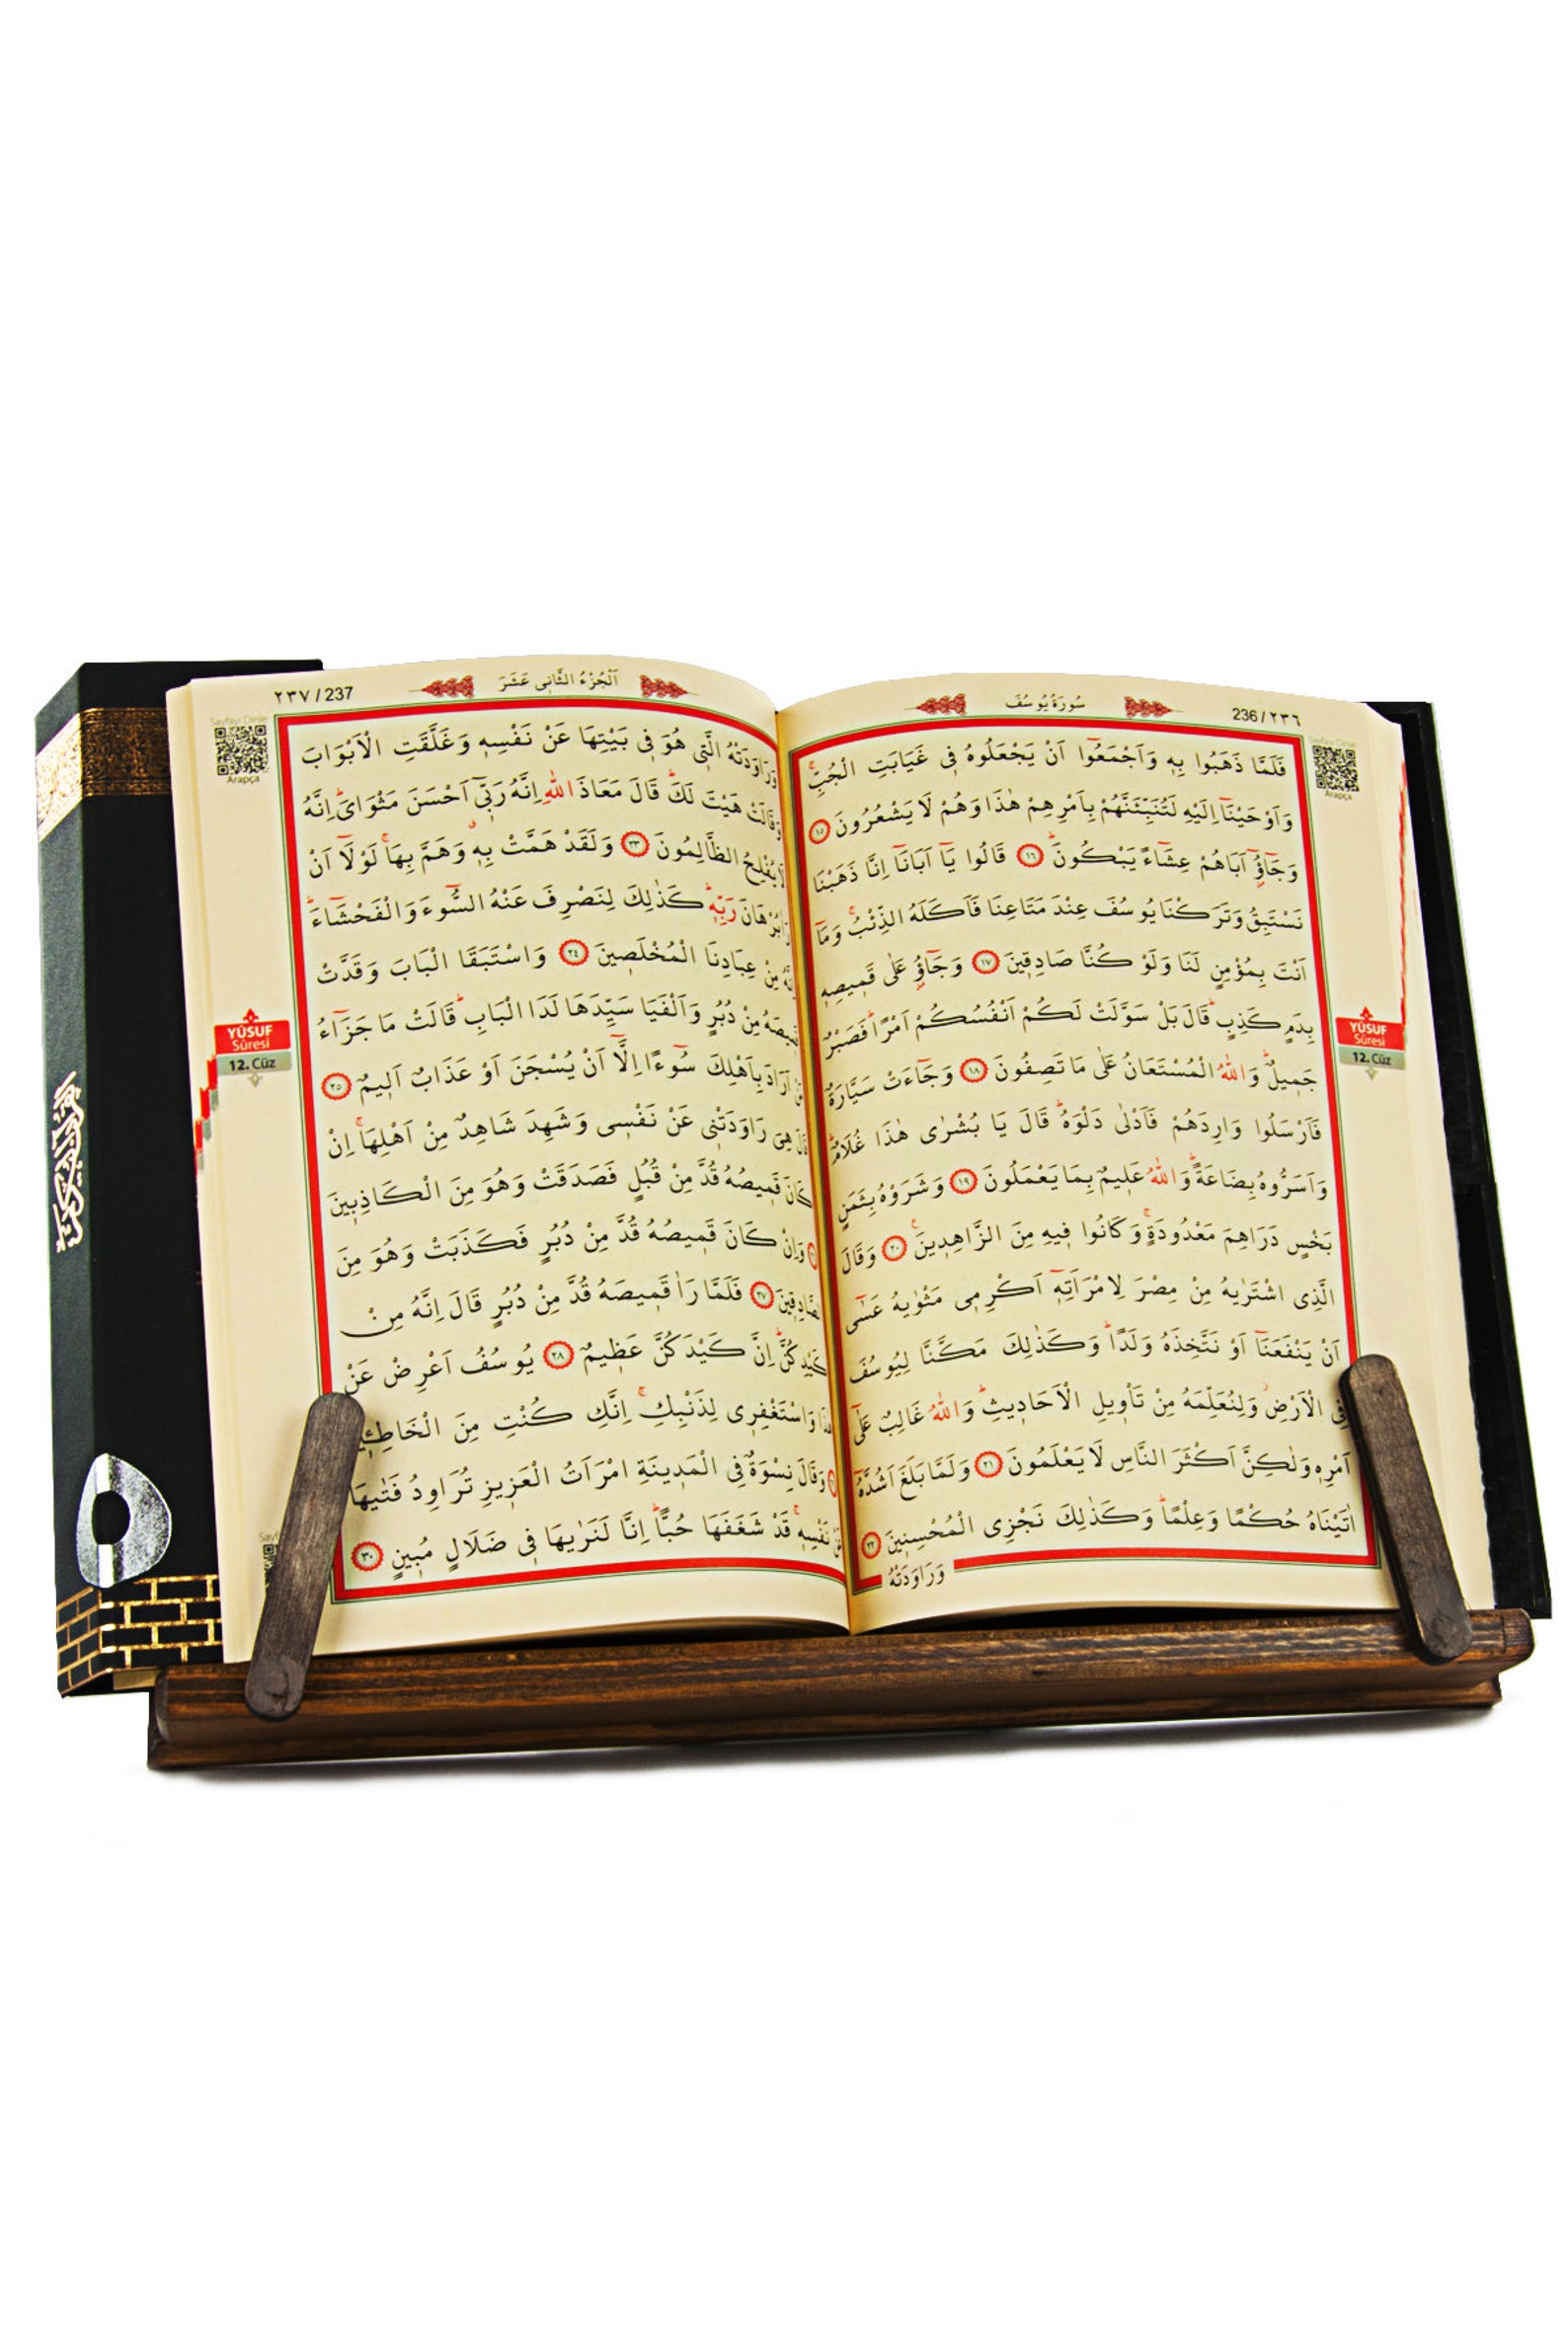 سُورَةُ يُوسُفَ
236 / ٢٣٦
Sayfayı Dinle
Arapça
YÛSUF
Sûresi
12. Cüz
فَلَمَّا ذَهَبُوا بِهٖ وَاَجْمَعُٓوا اَنْ يَجْعَلُوهُ فٖى غَيَابَتِ الْجُبِّۚ
وَاَوْحَيْنَٓا اِلَيْهِ لَتُنَبِّئَنَّهُمْ بِاَمْرِهِمْ هٰذَا وَهُمْ لَا يَشْعُرُونَ ١٥
وَجَٓاؤُٓ اَبَاهُمْ عِشَٓاءً يَبْكُونَؕ ١٦ قَالُوا يَٓا اَبَانَٓا اِنَّا ذَهَبْنَا
نَسْتَبِقُ وَتَرَكْنَا يُوسُفَ عِنْدَ مَتَاعِنَا فَاَكَلَهُ الذِّئْبُۚ وَمَٓا
اَنْتَ بِمُؤْمِنٍ لَنَا وَلَوْ كُنَّا صَادِقٖينَ ١٧ وَجَٓاؤُ عَلٰى قَمٖيصِهٖ
بِدَمٍ كَذِبٍؕ قَالَ بَلْ سَوَّلَتْ لَكُمْ اَنْفُسُكُمْ اَمْرًاؕ فَصَبْرٌ
جَمٖيلٌؕ وَاللّٰهُ الْمُسْتَعَانُ عَلٰى مَا تَصِفُونَ ١٨ وَجَٓاءَتْ سَيَّارَةٌ
فَاَرْسَلُوا وَارِدَهُمْ فَاَدْلٰى دَلْوَهُؕ قَالَ يَا بُشْرٰى هٰذَا غُلَامٌؕ
وَاَسَرُّوهُ بِضَاعَةًؕ وَاللّٰهُ عَلٖيمٌ بِمَا يَعْمَلُونَ ١٩ وَشَرَوْهُ بِثَمَنٍ
بَخْسٍ دَرَاهِمَ مَعْدُودَةٍۚ وَكَانُوا فٖيهِ مِنَ الزَّاهِدٖينَۚ ٢٠ وَقَالَ
الَّذِى اشْتَرٰيهُ مِنْ مِصْرَ لِامْرَاَتِهٖٓ اَكْرِمٖى مَثْوٰيهُ عَسٰٓى
اَنْ يَنْفَعَنَٓا اَوْ نَتَّخِذَهُ وَلَدًاؕ وَكَذٰلِكَ مَكَّنَّا لِيُوسُفَ
فِى الْاَرْضِؗ وَلِنُعَلِّمَهُ مِنْ تَأْوٖيلِ الْاَحَادٖيثِؕ وَاللّٰهُ غَالِبٌ عَلٰٓى
اَمْرِهٖ وَلٰكِنَّ اَكْثَرَ النَّاسِ لَا يَعْلَمُونَ ٢١ وَلَمَّا بَلَغَ اَشُدَّهُٓ
اٰتَيْنَاهُ حُكْمًا وَعِلْمًاؕ وَكَذٰلِكَ نَجْزِى الْمُحْسِنٖينَ ٢٢
وَرَاوَدَتْهُ
٢٣٧ / 237
اَلْجُزْءُ الثَّانٖى عَشَرَ
Sayfayı Dinle
Arapça
YÛSUF
Sûresi
12. Cüz
وَرَاوَدَتْهُ الَّتٖى هُوَ فٖى بَيْتِهَا عَنْ نَفْسِهٖ وَغَلَّقَتِ الْاَبْوَابَ
وَقَالَتْ هَيْتَ لَكَؕ قَالَ مَعَاذَ اللّٰهِ اِنَّهُ رَبّٖٓى اَحْسَنَ مَثْوَاىَؕ اِنَّهُ
لَا يُفْلِحُ الظَّالِمُونَ ٢٣ وَلَقَدْ هَمَّتْ بِهٖۚ وَهَمَّ بِهَاۚ لَوْلَٓا اَنْ
بُرْهَانَ رَبِّهٖؕ كَذٰلِكَ لِنَصْرِفَ عَنْهُ السُّٓوءَ وَالْفَحْشَٓاءَؕ
اِنَّهُ مِنْ عِبَادِنَا الْمُخْلَصٖينَ ٢٤ وَاسْتَبَقَا الْبَابَ وَقَدَّتْ
قَمٖيصَهُ مِنْ دُبُرٍ وَاَلْفَيَا سَيِّدَهَا لَدَا الْبَابِؕ قَالَتْ مَا جَزَٓاءُ
مَنْ اَرَادَ بِاَهْلِكَ سُٓوءًا اِلَّٓا اَنْ يُسْجَنَ اَوْ عَذَابٌ اَلٖيمٌ ٢٥
قَالَ هِىَ رَاوَدَتْنٖى عَنْ نَفْسٖى وَشَهِدَ شَاهِدٌ مِنْ اَهْلِهَاۚ اِنْ
كَانَ قَمٖيصُهُ قُدَّ مِنْ قُبُلٍ فَصَدَقَتْ وَهُوَ مِنَ الْكَاذِبٖينَ
وَاِنْ كَانَ قَمٖيصُهُ قُدَّ مِنْ دُبُرٍ فَكَذَبَتْ وَهُوَ مِنَ
الصَّادِقٖينَ ٢٧ فَلَمَّا رَاٰ قَمٖيصَهُ قُدَّ مِنْ دُبُرٍ قَالَ اِنَّهُ مِنْ
كَيْدِكُنَّؕ اِنَّ كَيْدَكُنَّ عَظٖيمٌ ٢٨ يُوسُفُ اَعْرِضْ عَنْ
هٰذَا وَاسْتَغْفِرٖى لِذَنْبِكِۚ اِنَّكِ كُنْتِ مِنَ الْخَاطِـٖٔ
وَقَالَ نِسْوَةٌ فِى الْمَدٖينَةِ امْرَاَتُ الْعَزٖيزِ تُرَاوِدُ فَتٰيهَا
عَنْ نَفْسِهٖۚ قَدْ شَغَفَهَا حُبًّاؕ اِنَّا لَنَرٰيهَا فٖى ضَلَالٍ مُبٖينٍ ٣٠